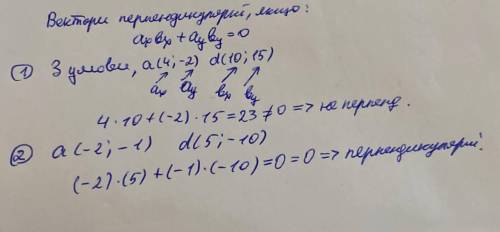 Вектори перпендикулярні, якщо:
axbx + ayby = 0
① З умови, a(4; -2) d(10; 15)
ax ay bx by
4 · 10 + (-2) · 15 = 23 ≠ 0 => не перпенд.
② a(-2; -1) d(5; -10)
(-2) · (5) + (-1) · (-10) = 0 = 0 => перпендикулярні.